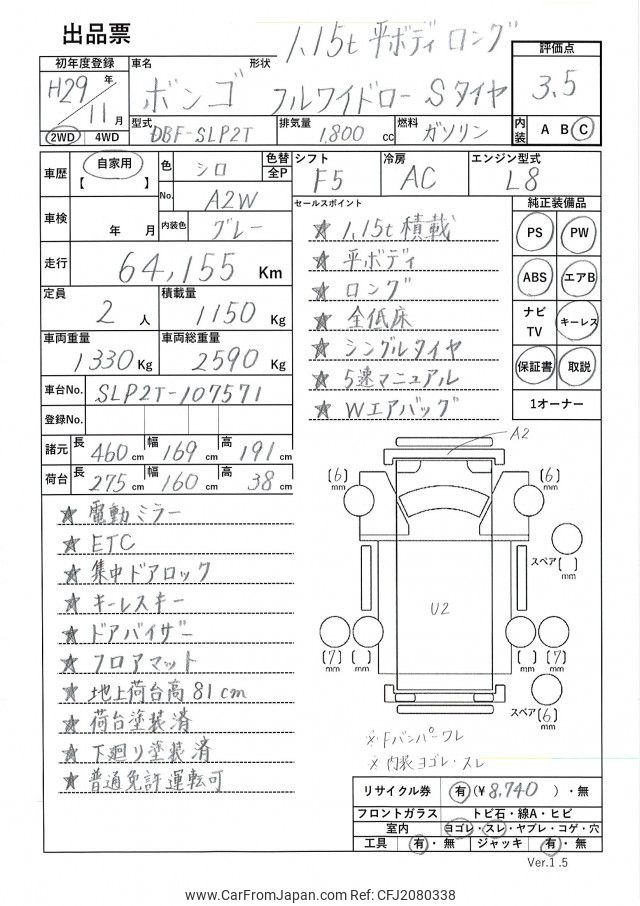 出品票
1.15t 平ボディ ロング
初年度登録
H29年
11月
2WD 4WD
車名 ボンゴ
形状 フルワイドロー Sタイヤ
評価点
3.5
型式 DBF-SLP2T
排気量 1,800 cc
燃料 ガソリン
内装 A B C
車歴 自家用
【 】
色 シロ
色替 全P
No. A2W
シフト F5
冷房 AC
エンジン型式 L8
車検 年 月
内装色 グレー
走行 64,155 Km
定員 2 人
積載量 1150 Kg
車両重量 1330 Kg
車両総重量 2590 Kg
車台No. SLP2T-107571
登録No.
諸元 長 460 cm 幅 169 cm 高 191 cm
荷台 長 275 cm 幅 160 cm 高 38 cm
セールスポイント
★ 1.15t積載
★ 平ボディ
★ ロング
★ 全低床
★ シングルタイヤ
★ 5速マニュアル
★ Wエアバッグ
純正装備品
PS PW
ABS エアB
ナビTV キーレス
保証書 取説
1オーナー
★ 電動ミラー
★ ETC
★ 集中ドアロック
★ キーレスキー
★ ドアバイザー
★ フロアマット
★ 地上荷台高81cm
★ 荷台塗装済
★ 下廻り塗装済
★ 普通免許運転可
A2
(6) mm
(6) mm
スペア( ) mm
U2
(7) mm
( ) mm
( ) mm
(7) mm
スペア(6) mm
※ Fバンパーワレ
※ 内装ヨゴレ・スレ
リサイクル券 有(¥8,740)・無
フロントガラス トビ石・線A・ヒビ
室内 ヨゴレ・スレ・ヤブレ・コゲ・穴
工具 有・無 ジャッキ 有・無
Ver.1.5
www.CarFromJapan.com Ref: CFJ2080338